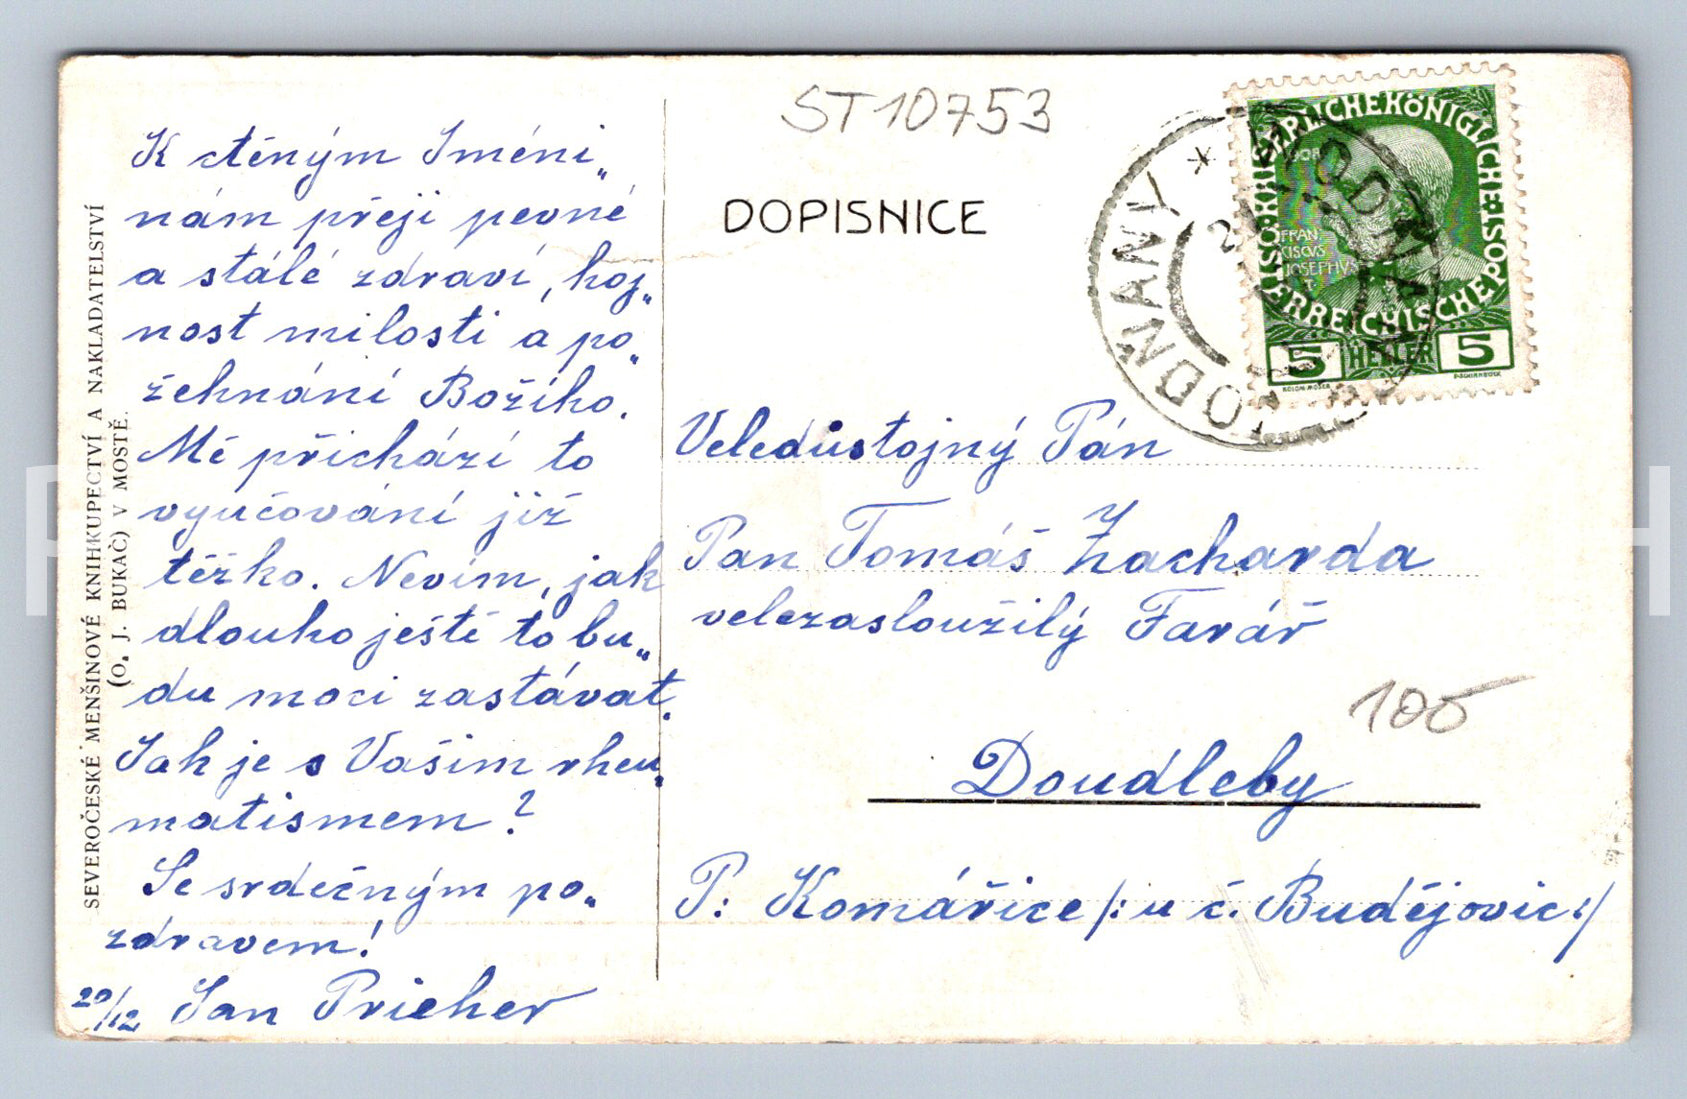 ST10753
DOPISNICE
K ctěným Jméni„
nám přeji pevné
a stálé zdraví, hoj„
nost milosti a po„
žehnání Božího.
Mě přichází to
vyučování již
těžko. Nevím, jak
dlouho ještě to bu„
du moci zastávat.
Jak je s Vašim rheu„
matismem?
Se srdečným po„
zdravem!
20/12 Jan Pricher
SEVEROČESKÉ MENŠINOVÉ KNIHKUPECTVÍ A NAKLADATELSTVÍ
(O. J. BUKAČ) V MOSTĚ.
VODŇANY * VODŇAN
KAISERLICHEKÖNIGLICHE
ÖSTERREICHISCHE POST
1908
FRAN
CISCVS
JOSEPHVS
I
5 HELLER 5
KOLOM. MOSER
F. SCHIRNBÖCK
Veledůstojný Pán
Pan Tomáš Zacharda
velezasloužilý Farář
100
Doudleby
P: Komářice /: u č. Budějovic :/